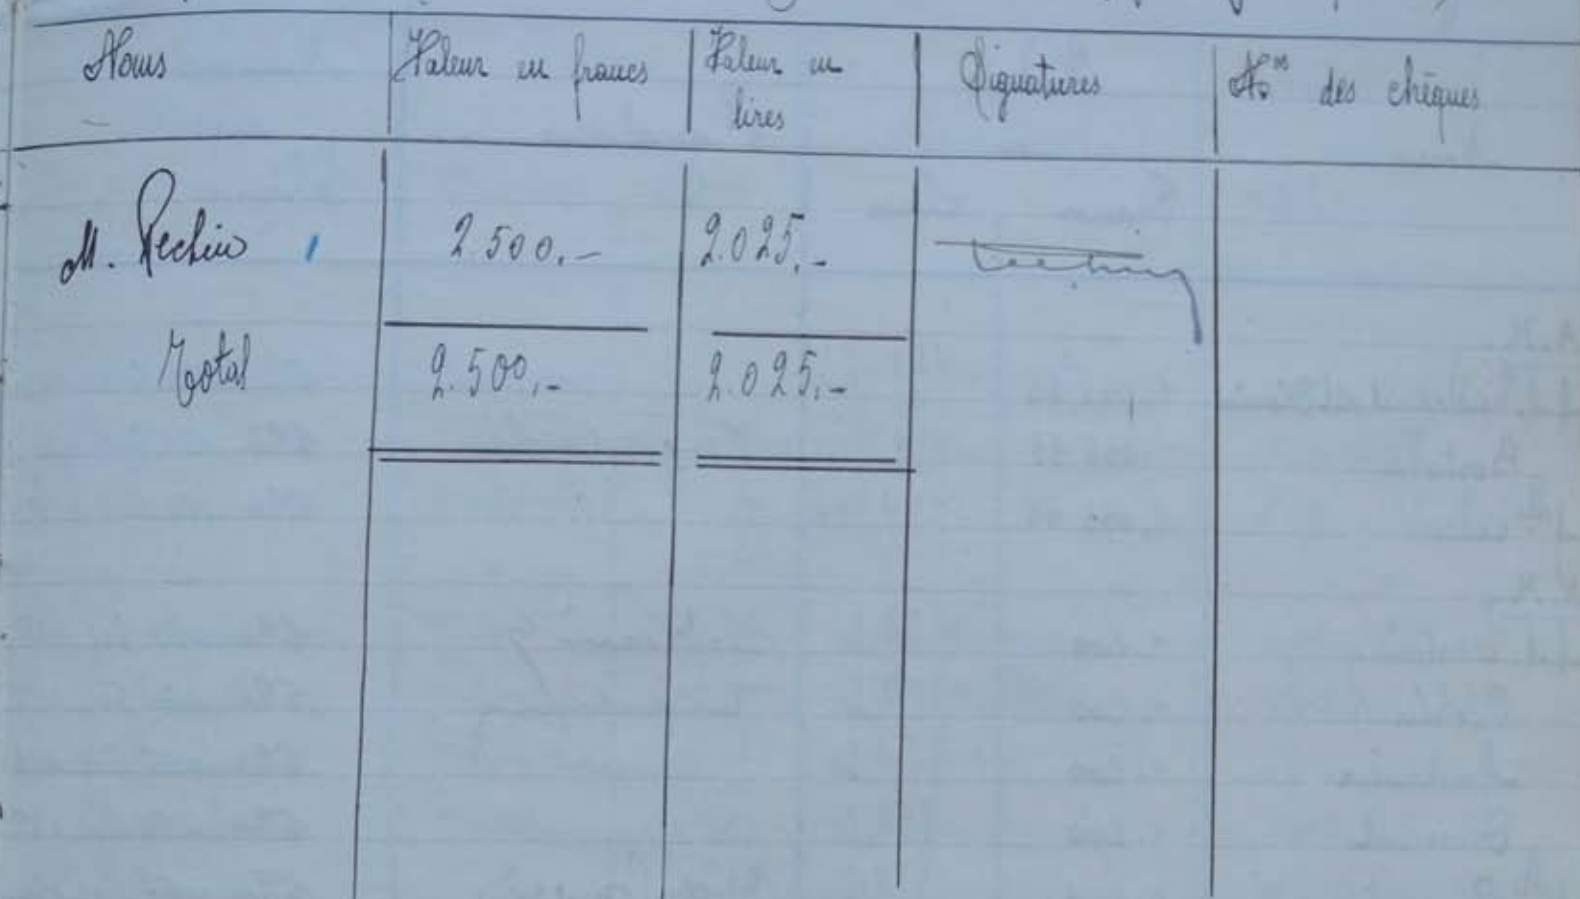 Noms Valeur en francs Valeur en lires Signatures Nos des chèques
M. Pechin 2.500.- 2.025.-
Total 2.500.- 2.025.-